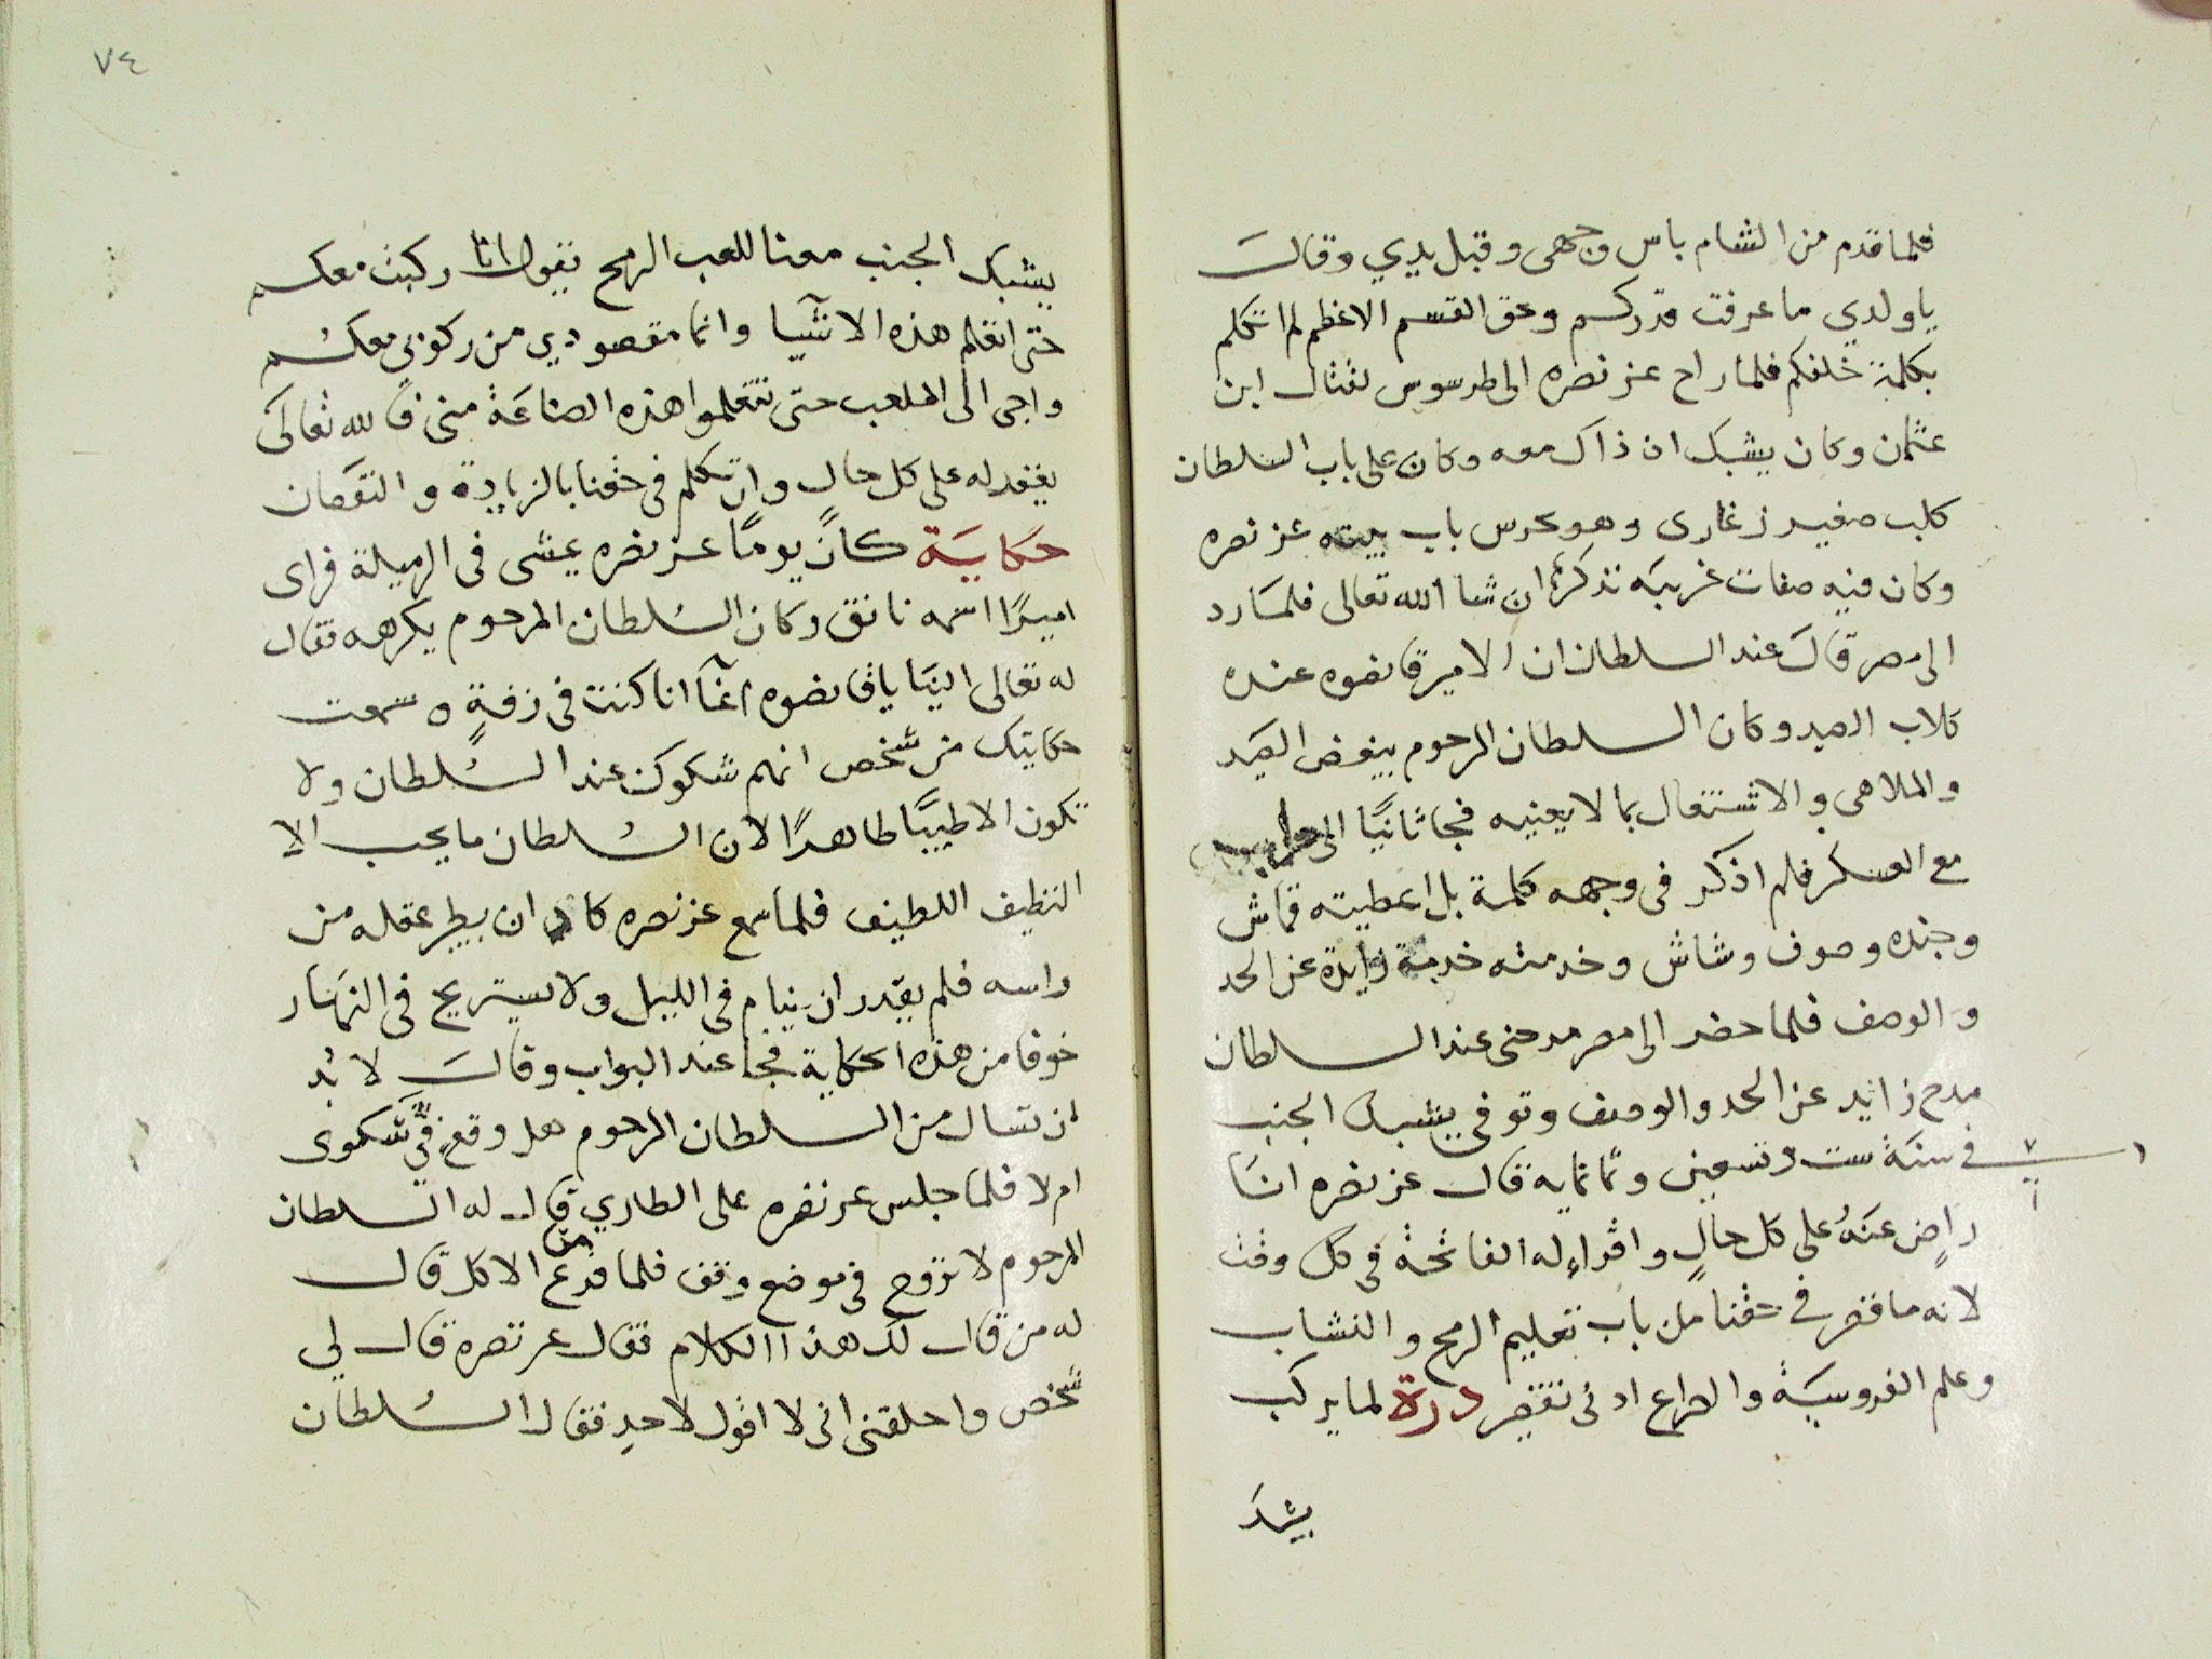 فلما قدم من الشام باس وجهى وقبل يدي وقال
يا ولدي ما عرفت قدركم وحق القسم الاعظم لم اتكلم
بكلمة خلفكم فلما راح عز نصره الى طرسوس لقتال ابن
عثمن وكان يشبك اذ ذاك معه وكان على باب السلطان
كلب صغير زغارى وهو يحرس باب بيته عز نصره
وكان فيه صفات غريبه نذكرها ان شا الله تعالى فلما رد
الى مصر قال عند السلطان ان الامير قانصوه عنده
كلاب الصيد وكان السلطان المرحوم يبغض الصيد
والملاهى والاشتغال بما لا يعنيه فجا ثانيًا الى حلب
مع العسكر فلم اذكر فى وجهه كلمة بل اعطيته قماش
وجنده وصوف وشاش وخدمته خدمة زايدة عن الحد
والوصف فلما حضر الى مصر مدحنى عند السلطان
مدح زايد عن الحد والوصف وتوفى يشبك الجنب
فى سنة ست وتسعين وثمانمايه قال عز نصره انا
راضٍ عنهُ على كل حالٍ واقراءُ له الفاتحة فى كل وقت
لانه ما قصر فى حقنا من باب تعليم الرمح والنشاب
وعلم الفروسية والصراع ادنى تقصير درة لما يركب
يشبك
٧٤
يشبك الجنب معنا للعب الرمح يقول انا ركبت معكم
حتى اتعلم هذه الاشيا وانما مقصودي من ركوبي معكم
واجى الى الملعب حتى تتعلموا هذه الصناعة منى فالله تعالى
يغفر له على كل حال وان تكلم فى حقنا بالزيادة والنقصان
حكاية كان يومًا عز نصره يمشى فى الرميلة فراى
اميرًا اسمه نانق وكان السلطان المرحوم يكرهه فقال
له تعالى الينا يا قانصوه اغا انا كنت فى زفةٍ وسمعت
حكايتك من شخص انهم شكوك عند السلطان ولا
تكون الا طيبًا طاهرًا لان السلطان ما يحب الا
النظيف اللطيف فلما سمع عز نصره كاد ان يطير عقله من
راسه فلم يقدر ان ينام فى الليل ولا يستريح فى النهار
خوفا من هذه الحكاية فجا عند البواب وقال لا بد
ان تسال من السلطان المرحوم هل وقع فيَّ شكوى
ام لا فلما جلس عز نصره على الطاري قال له السلطان
المرحوم لا تروح فى موضع وقف فلما فرغ من الاكل قال
له من قال لك هذا الكلام فقال عز نصره قال لي
شخص واحلفنى انى لا اقول لاحدٍ فقال السلطان